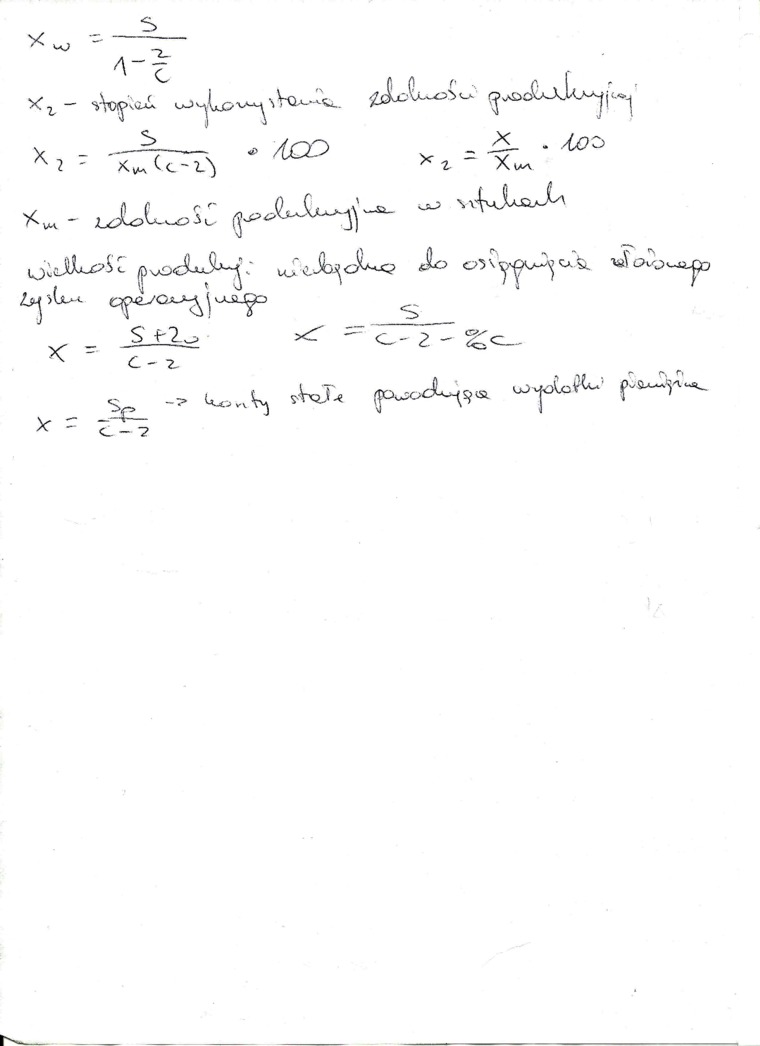 x w = S / (1 - z/c)
x z - stopień wykorzystania zdolności produkcyjnej
x z = S / (x m (c-z)) • 100 x z = x / x m • 100
x m - zdolność produkcyjna w sztukach
wielkość produkcji niezbędna do osiągnięcia
zysku operacyjnego
x = (S + zo) / (c-z) x = S / (c - z - %c)
x = Sp / (c-z) -> koszty stałe powodujące wydatki pieniężne